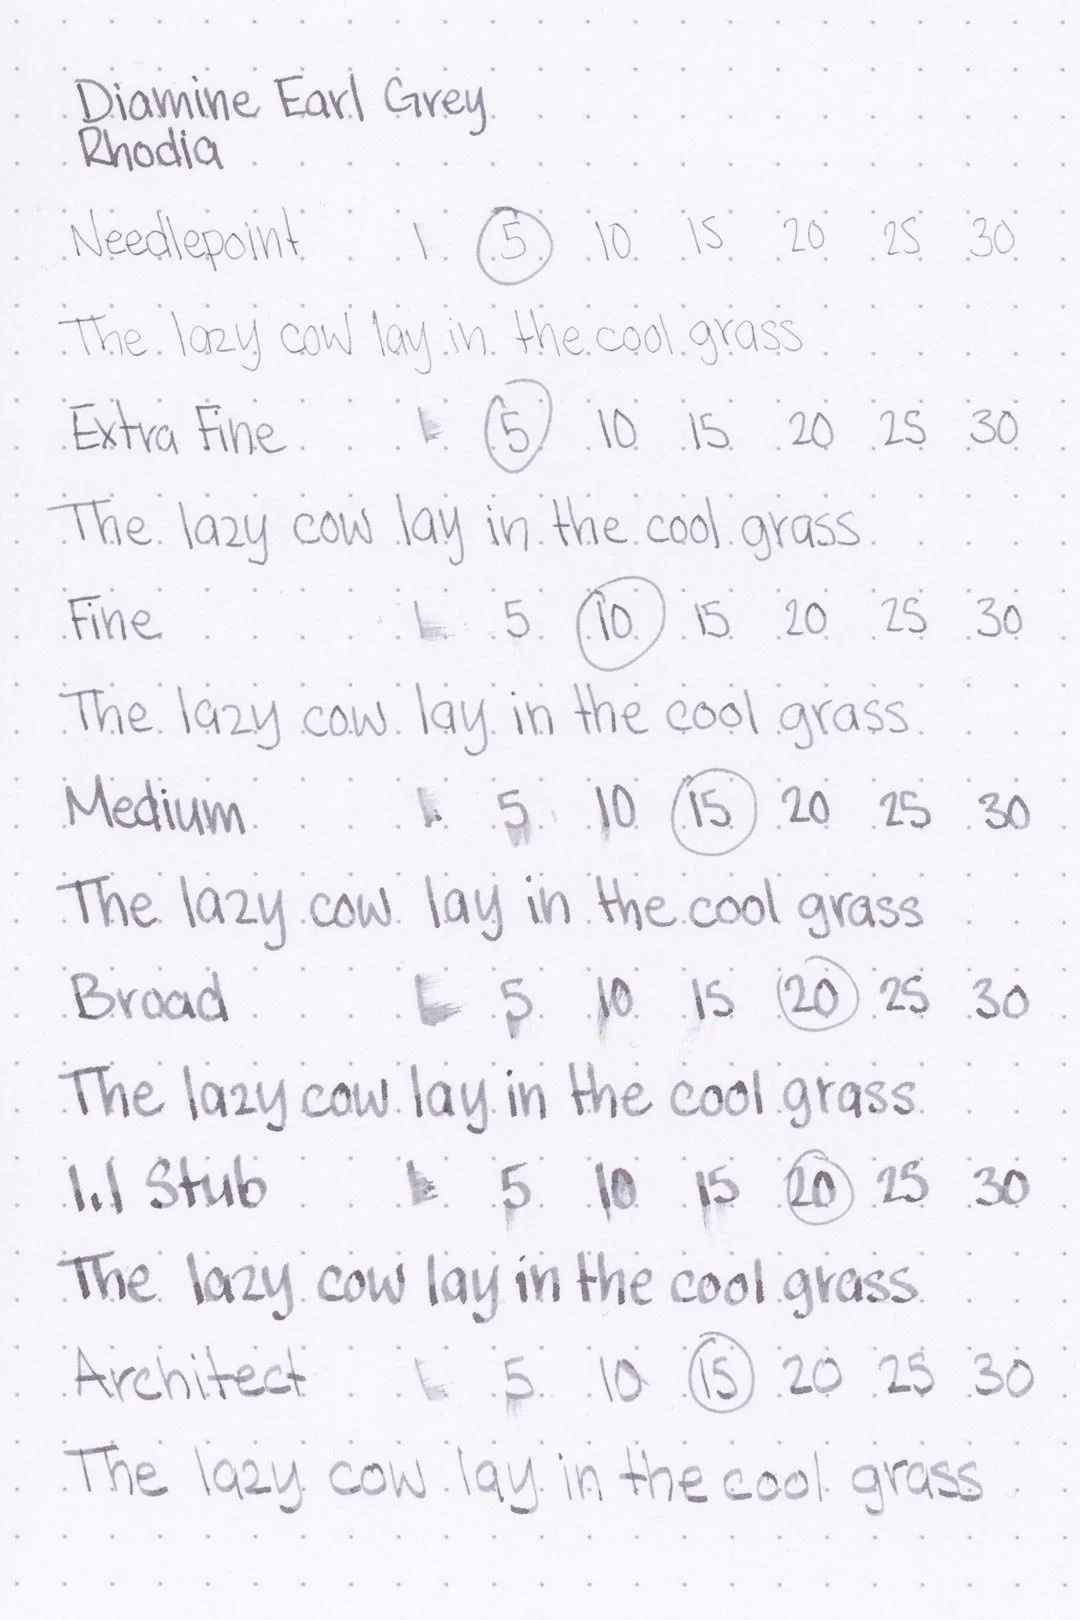 Diamine Earl Grey
Rhodia
Needlepoint 1 5 10 15 20 25 30
The lazy cow lay in the cool grass
Extra Fine 1 5 10 15 20 25 30
The lazy cow lay in the cool grass
Fine 1 5 10 15 20 25 30
The lazy cow lay in the cool grass
Medium 1 5 10 15 20 25 30
The lazy cow lay in the cool grass
Broad 1 5 10 15 20 25 30
The lazy cow lay in the cool grass
1.1 Stub 1 5 10 15 20 25 30
The lazy cow lay in the cool grass
Architect 1 5 10 15 20 25 30
The lazy cow lay in the cool grass